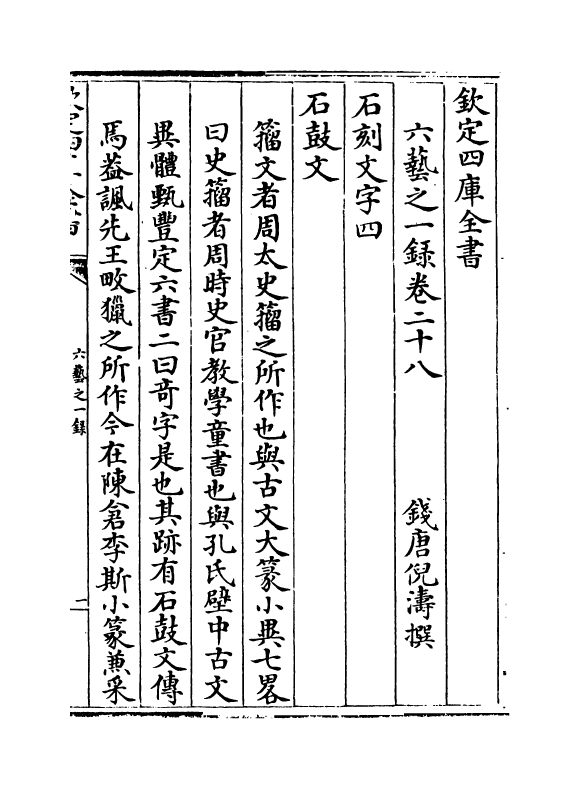 欽定四庫全書
六藝之一録卷二十八
錢唐倪濤撰
石刻文字四
石鼓文
籀文者周太史籀之所作也與古文大篆小異七畧
曰史籀者周時史官教學童書也與孔氏壁中古文
異體甄豐定六書二曰竒字是也其跡有石鼓文傳
焉葢諷先王畋獵之所作今在陳倉李斯小篆兼采
六藝之一録